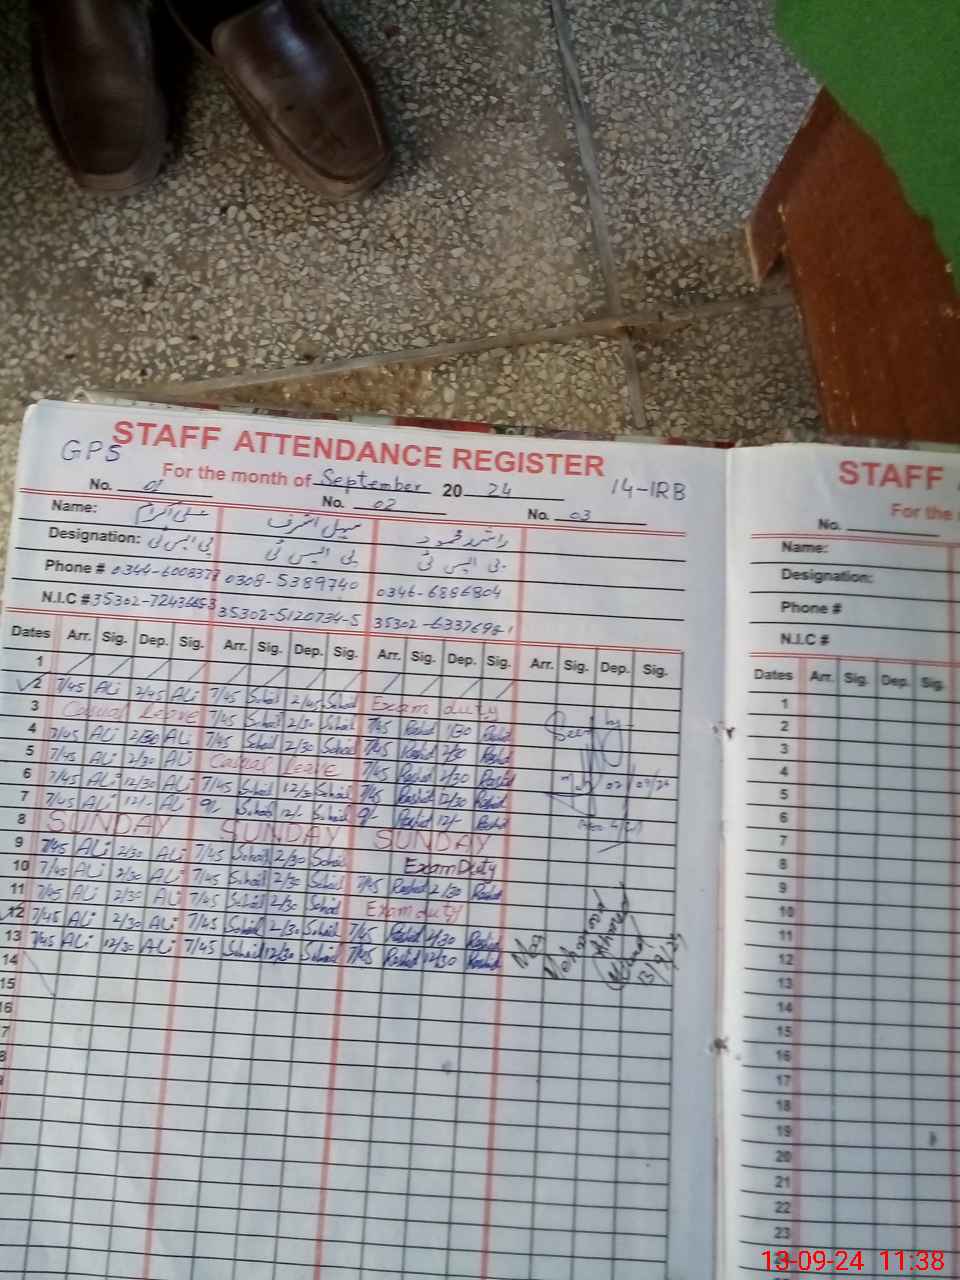 STAFF ATTENDANCE REGISTER
GPS For the month of September 2024 14-1RB
No. 01 No. 02 No. 03
Name: علی اکرام سہیل اشرف راشد محمود
Designation: پی ایس ٹی پی ایس ٹی پی ایس ٹی
Phone # 0344-6008377 0308-5389740 0346-6886804
N.I.C # 35302-5120734-5
Dates Arr. Sig. Dep. Sig. Arr. Sig. Dep. Sig. Arr. Sig. Dep. Sig. Arr. Sig. Dep. Sig.
1
2 7/45 Ali 2/45 Ali 7/45 Sohail 2/45 Sohail Exam duty
3 Casual Leave 7/45 Sohail 2/30 Sohail 7/45 Rashid 1/30 Rashid
4 7/45 Ali 2/30 Ali 7/45 Sohail 2/30 Sohail 7/45 Rashid 2/30 Rashid
5 7/45 Ali 2/30 Ali Casual Leave 7/45 Rashid 2/30 Rashid
6 7/45 Ali 12/30 Ali 7/45 Sohail 12/30 Sohail 7/45 Rashid 12/30 Rashid
7 7/45 Ali 12/- Ali 9/- Sohail 12/- Sohail 9/- Rashid 12/- Rashid
8 SUNDAY SUNDAY SUNDAY
9 7/45 Ali 2/30 Ali 7/45 Sohail 2/30 Sohail Exam Duty
10 7/45 Ali 2/30 Ali 7/45 Sohail 2/30 Sohail 7/45 Rashid 2/30 Rashid
11 7/45 Ali 2/30 Ali 7/45 Sohail 2/30 Sohail Exam duty
12 7/45 Ali 2/30 Ali 7/45 Sohail 2/30 Sohail 7/45 Rashid 2/30 Rashid
13 7/45 Ali 12/30 Ali 7/45 Sohail 12/30 Sohail 7/45 Rashid 12/30 Rashid
14
15
16
Seen by
Ahmed
13/9/24
STAFF
For the
No.
Name:
Designation:
Phone #
N.I.C #
Dates Arr. Sig. Dep. Sig.
1
2
3
4
5
6
7
8
9
10
11
12
13
14
15
16
17
18
19
20
21
22
23
13-09-24 11:38